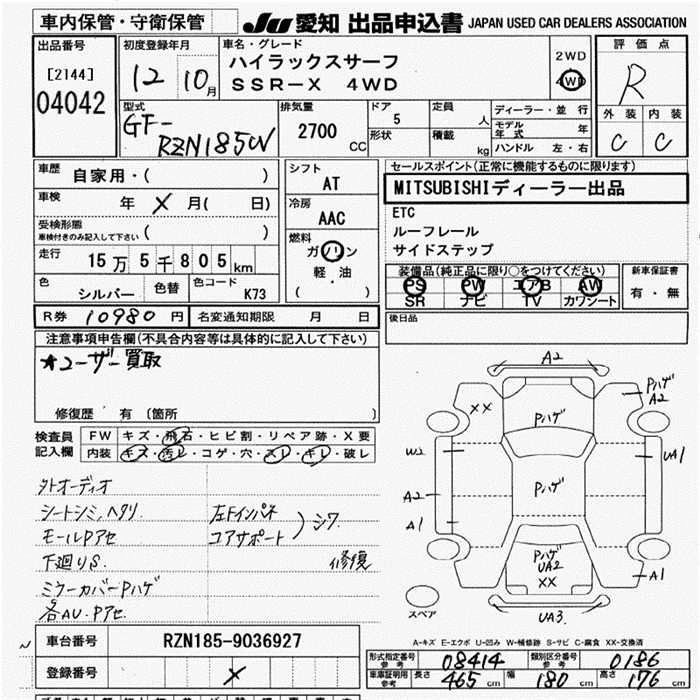 車内保管・守衛保管
JU 愛知 出品申込書 JAPAN USED CAR DEALERS ASSOCIATION
出品番号
[2144]
04042
初度登録年月
12 10月
車名・グレード
ハイラックスサーフ
SSR-X 4WD
2WD
4WD
評価点
R
外装 内装
C C
型式
GF-
RZN185W
排気量
2700
CC
ドア
5
形状
定員
人
積載
kg
ディーラー・並行
モデル
年式 年
ハンドル 左・右
車歴
自家用・( )
車検 年 X 月( 日)
受検形態
車検付きのみ記入して下さい ( )
走行 15万5千805km
色 シルバー 色替 色コード K73
シフト
AT
冷房
AAC
燃料
ガソリン
軽・油
( )
セールスポイント(正常に機能するものに限ります)
MITSUBISHIディーラー出品
ETC
ルーフレール
サイドステップ
装備品(純正品に限り○をつけてください)
PS PW エアB AW
SR ナビ TV カワシート
新車保証書
有・無
後日品
R券 10980円 名変通知期限 月 日
注意事項申告欄(不具合内容等は具体的に記入して下さい)
★ユーザー買取
修復歴 有 〔箇所 〕
検査員
記入欄
FW キズ・飛石・ヒビ割・リペア跡・X要
内装 キズ・汚レ・コゲ・穴・スレ・キレ・破レ
外オーディオ
シートシミ、ヘタリ
モールPアセ
下廻りS
ミラーカバーPハゲ
各AU.Pアセ
左Fインパネ
コアサポート
)シワ
修復
A2
XX
Pハゲ
A2
Pハゲ
W2
UA1
Pハゲ
A2
A1
Pハゲ
UA2
XX
A1
スペア
UA3
A-キズ E-エクボ U-凹み W-補修跡 S-サビ C-腐食 XX-交換済
車台番号 RZN185-9036927
登録番号 X
形式指定番号
参考
08414
類別区分番号
参考
0186
車庫証明用
参考
長さ 465cm 幅 180cm 高さ 176cm